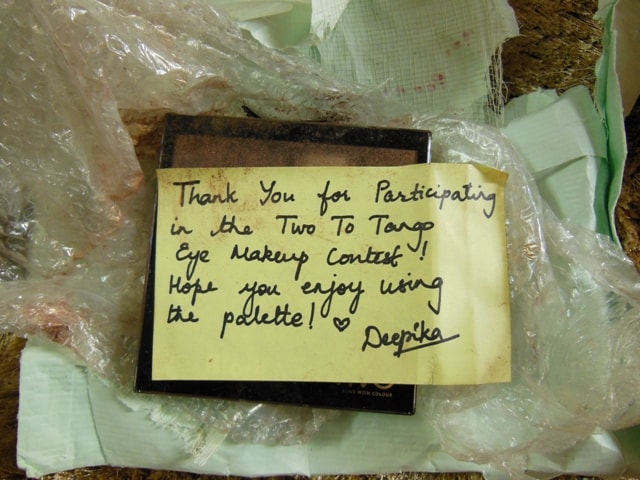 Thank You for Participating
in the Two To Tango
Eye Makeup Contest!
Hope you enjoy using
the palette! ♡
Deepika
WITH COLOUR